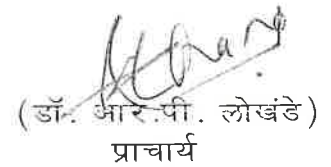 (डॉ. आर.पी. लोखंडे)
प्राचार्य